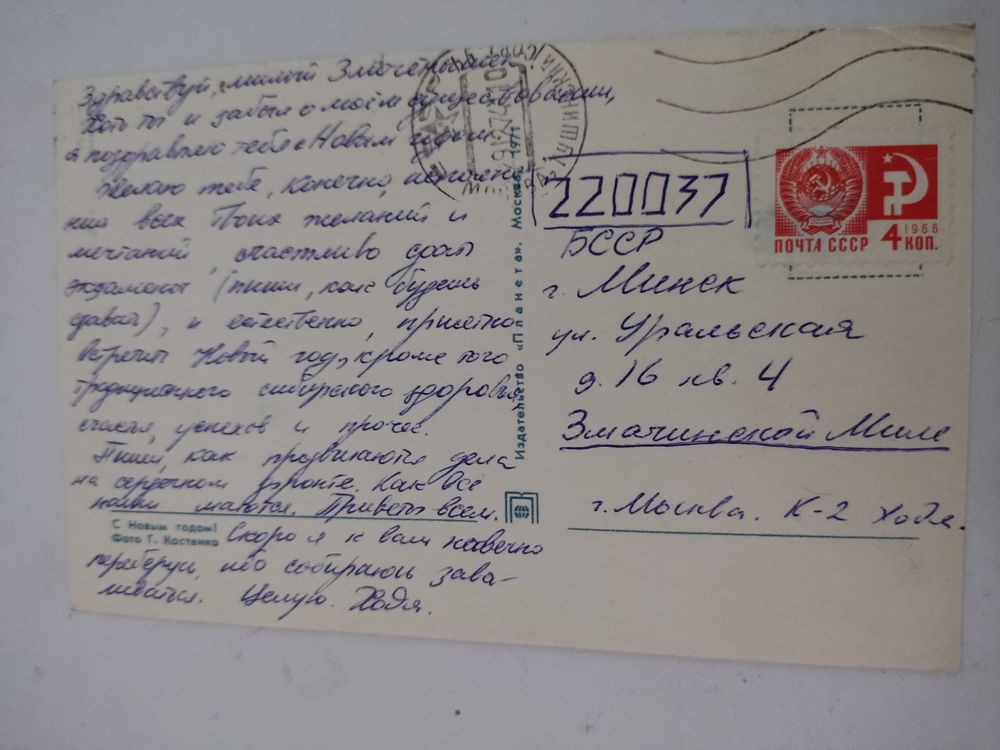 Здравствуй, милый Змаченыш!
Хоть ты и забыл о моём существовании,
я поздравляю тебя с Новым годом.
Желаю тебе, конечно, исполне-
ния всех твоих желаний и
мечтаний, счастливо сдать
экзамены (пиши, как будешь
сдавать), и естественно, приятно
встретить Новый год, кроме того
традиционного сибирского здоровья,
счастья, успехов и прочее.
Пиши, как продвигаются дела
на сердечном фронте. Как все
наши маются. Приветы всем.
Скоро я к вам навечно
переберусь, ибо собираюсь зава-
ливаться. Целую. Ходя.
С Новым годом!
Фото Г. Костенко
Издательство «Планета». Москва. 1971
МОСКВА
220037
БССР
г. Минск
ул. Уральская
д. 16 кв. 4
Змачинской Миле
г. Москва. К-2 Ходя.
ПОЧТА СССР
1966
4 КОП.